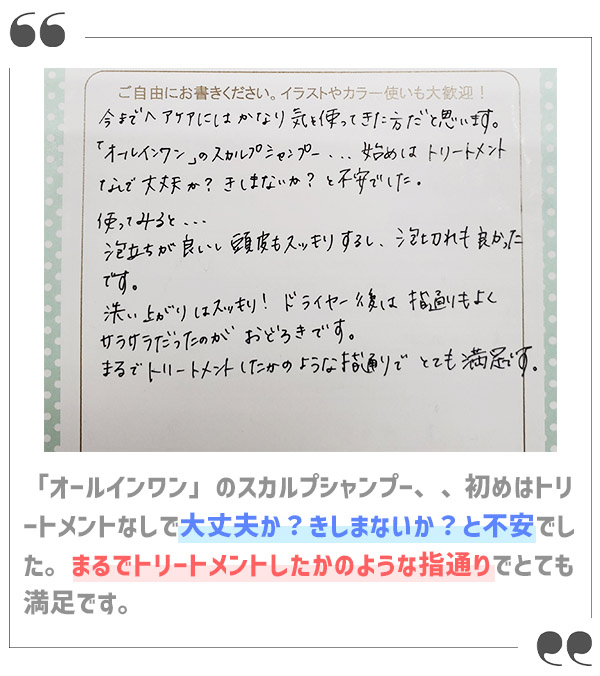 ご自由にお書きください。イラストやカラー使いも大歓迎！
今までヘアケアにはかなり気を使ってきた方だと思います。
「オールインワン」のスカルプシャンプー...始めはトリートメント
なしで大丈夫か？きしまないか？と不安でした。
使ってみると...
泡立ちが良いし頭皮もスッキリするし、泡切れも良かった
です。
洗い上がりはスッキリ！ドライヤー後は指通りもよく
サラサラだったのがおどろきです。
まるでトリートメントしたかのような指通りでとても満足です。
「オールインワン」のスカルプシャンプー、、初めはトリ
ートメントなしで大丈夫か？きしまないか？と不安でし
た。まるでトリートメントしたかのような指通りでとても
満足です。